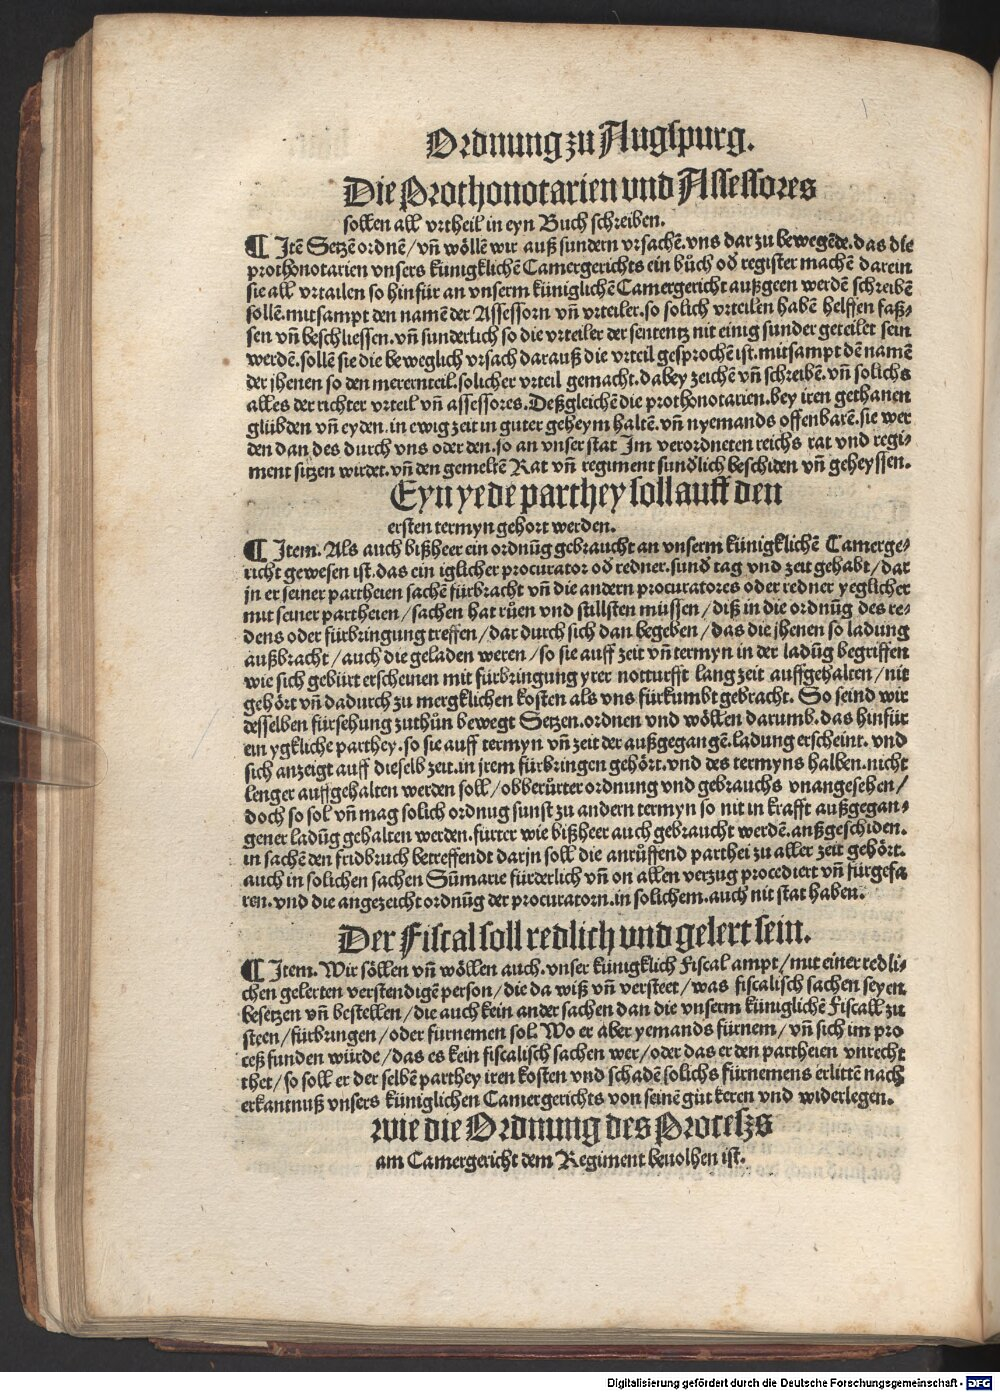 Ordnung zu Augspurg.
Die Prothonotarien vnd Assessores
sollen all vrtheil in eyn Buch schreiben.
¶ Itē Setzē ordnē / vn̄ wöllē wir auß sundern vrsachē. vns dar zu bewegēde. das die
prothonotarien vnsers künigklichē Camergerichts ein bůch od̄ register machē darein
sie all vrtailen so hinfür an vnserm küniglichē Camergericht außgeen werdē schreibē
sollē. mitsampt den namē der Assessorn vn̄ vrteiler. so solich vrteilen habē helffen faß⸗
sen vn̄ beschliessen. vn̄ sunderlich so die vrteiler der sententz nit einig sunder geteilet sein
werdē. sollē sie die beweglich vrsach darauß die vrteil gesprochē ist. mitsampt dē namē
der jhenen so den merernteil. solicher vrteil gemacht. dabey zeichē vn̄ schreibē. vn̄ solichs
alles der richter vrteil vn̄ assessores. Deßgleichē die prothonotarien. bey iren gethanen
glübden vn̄ eyden. in ewig zeit in guter geheym haltē. vn̄ nyemands offenbarē. sie wer
den dan des durch vns oder den. so an vnser stat Im verordneten reichs rat vnd regi⸗
ment sitzen wirdet. vn̄ den gemeltē Rat vn̄ regiment sund̄lich beschiden vn̄ geheyssen.
Eyn yede parthey soll auff den
ersten termyn gehort werden.
¶ Item. Als auch bißheer ein ordnūg gebraucht an vnserm künigklichē Camerge⸗
richt gewesen ist. das ein iglicher procurator od̄ redner. sund̄ tag vnd zeit gehabt / dar
jn er seiner partheien sachē fürbracht vn̄ die andern procuratores oder redner yeglicher
mit seiner partheien / sachen hat růen vnd stillsten müssen / diß in die ordnūg des re⸗
dens oder fürbringung treffen / dar durch sich dan begeben / das die jhenen so ladung
außbracht / auch die geladen weren / so sie auff zeit vn̄ termyn in der ladūg begriffen
wie sich gebürt erscheinen mit fürbringung yrer notturfft lang zeit auffgehalten / nit
gehört vn̄ dadurch zu mergklichen kosten als vns fürkumbt gebracht. So seind wir
desselben fürsehung zuthůn bewegt Setzen. ordnen vnd wöllen darumb. das hinfür
ein ygkliche parthey. so sie auff termyn vn̄ zeit der außgegangē. ladung erscheint. vnd
sich anzeigt auff dieselb zeit. in jrem fürbringen gehört. vnd des termyns halben. nicht
lenger auffgehalten werden soll / obberürter ordnung vnd gebrauchs vnangesehen /
doch so sol vn̄ mag solich ordnug sunst zu andern termyn so nit in krafft außgegan⸗
gener ladūg gehalten werden. fürter wie bißheer auch gebraucht werdē. anßgeschiden.
in sachē den fridbruch betreffendt darjn soll die anrůffend parthei zu aller zeit gehört.
auch in solichen sachen Sūmarie fürderlich vn̄ on allen verzug procediert vn̄ fürgefa
ren. vnd die angezeicht ordnūg der procuratorn. in solichem. auch nit stat haben.
Der Fiscal soll redlich vnd gelert sein.
¶ Item. Wir söllen vn̄ wöllen auch. vnser künigklich Fiscal ampt / mit einer redli⸗
chen gelerten verstendigē person / die da wiß vn̄ versteet / was fiscalisch sachen seyen.
besetzen vn̄ bestellen / die auch kein ander sachen dan die vnserm küniglichē Fiscall zu
steen / fürbringen / oder fürnemen sol. Wo er aber yemands fürnem / vn̄ sich im pro
ceß funden würde / das es kein fiscalisch sachen wer / oder das er den partheien vnrecht
thet / so soll er der selbē parthey iren kosten vnd schadē solichs fürnemens erlittē nach
erkantnuß vnsers küniglichen Camergerichts von seinē güt keren vnd widerlegen.
wie die Ordnung des Procesßs
am Camergericht dem Regiment beuolhen ist.
Digitalisierung gefördert durch die Deutsche Forschungsgemeinschaft - DFG